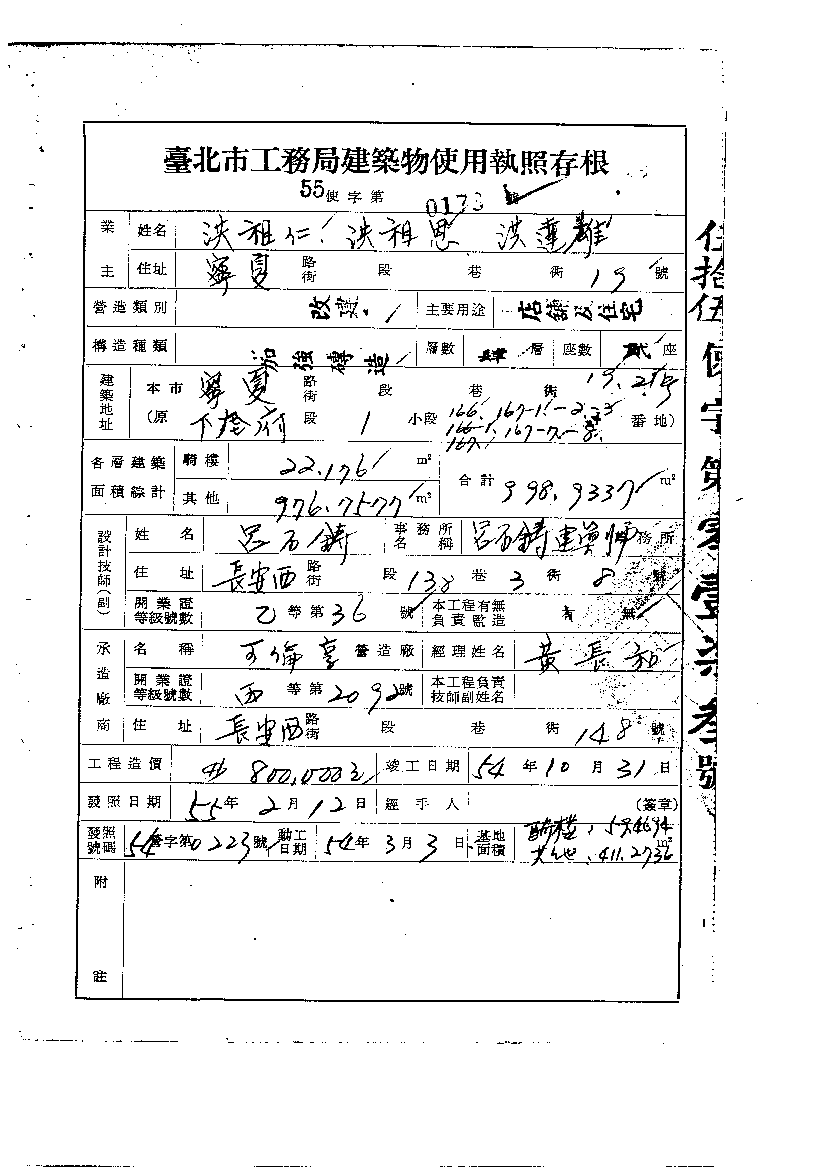 臺北市工務局建築物使用執照存根
55使字第0173號
業主 姓名 洪祖仁 洪祖恩 洪蓮雄
住址 寧夏 路街 段 巷 衖 19 號
營造類別 改建 主要用途 店鋪及住宅
構造種類 加強磚造 層數 肆 層 座數 貳 座
建築地址 本市 寧夏 路街 段 巷 衖 19.21號
(原 下奎府 段 1 小段 番地)
各層建築面積綜計 騎樓 22.176 m² 合計 998.9337 m²
其他 976.7577 m²
設計技師(副) 姓名 呂石鑄 事務所名稱 呂石鑄建築師 務所
住址 長安西 路街 段 138 巷 3 衖 8 號
開業證等級號數 乙 等第 36 號 本工程有無負責監造 有 無
承造廠商 名稱 營造廠 經理姓名 黃長
開業證等級號數 丙 等第 2092 號 本工程負責技師副姓名
住址 長安西 路街 段 巷 衖 148 號
工程造價 800,000 竣工日期 54年10月31日
發照日期 55年2月12日 經手人 (簽章)
發照號碼 54營字第0223號 動工日期 54年3月3日 基地面積 騎樓:59.4694
其他:411.2736 m²
附註
伍拾伍使字第零壹柒叁號